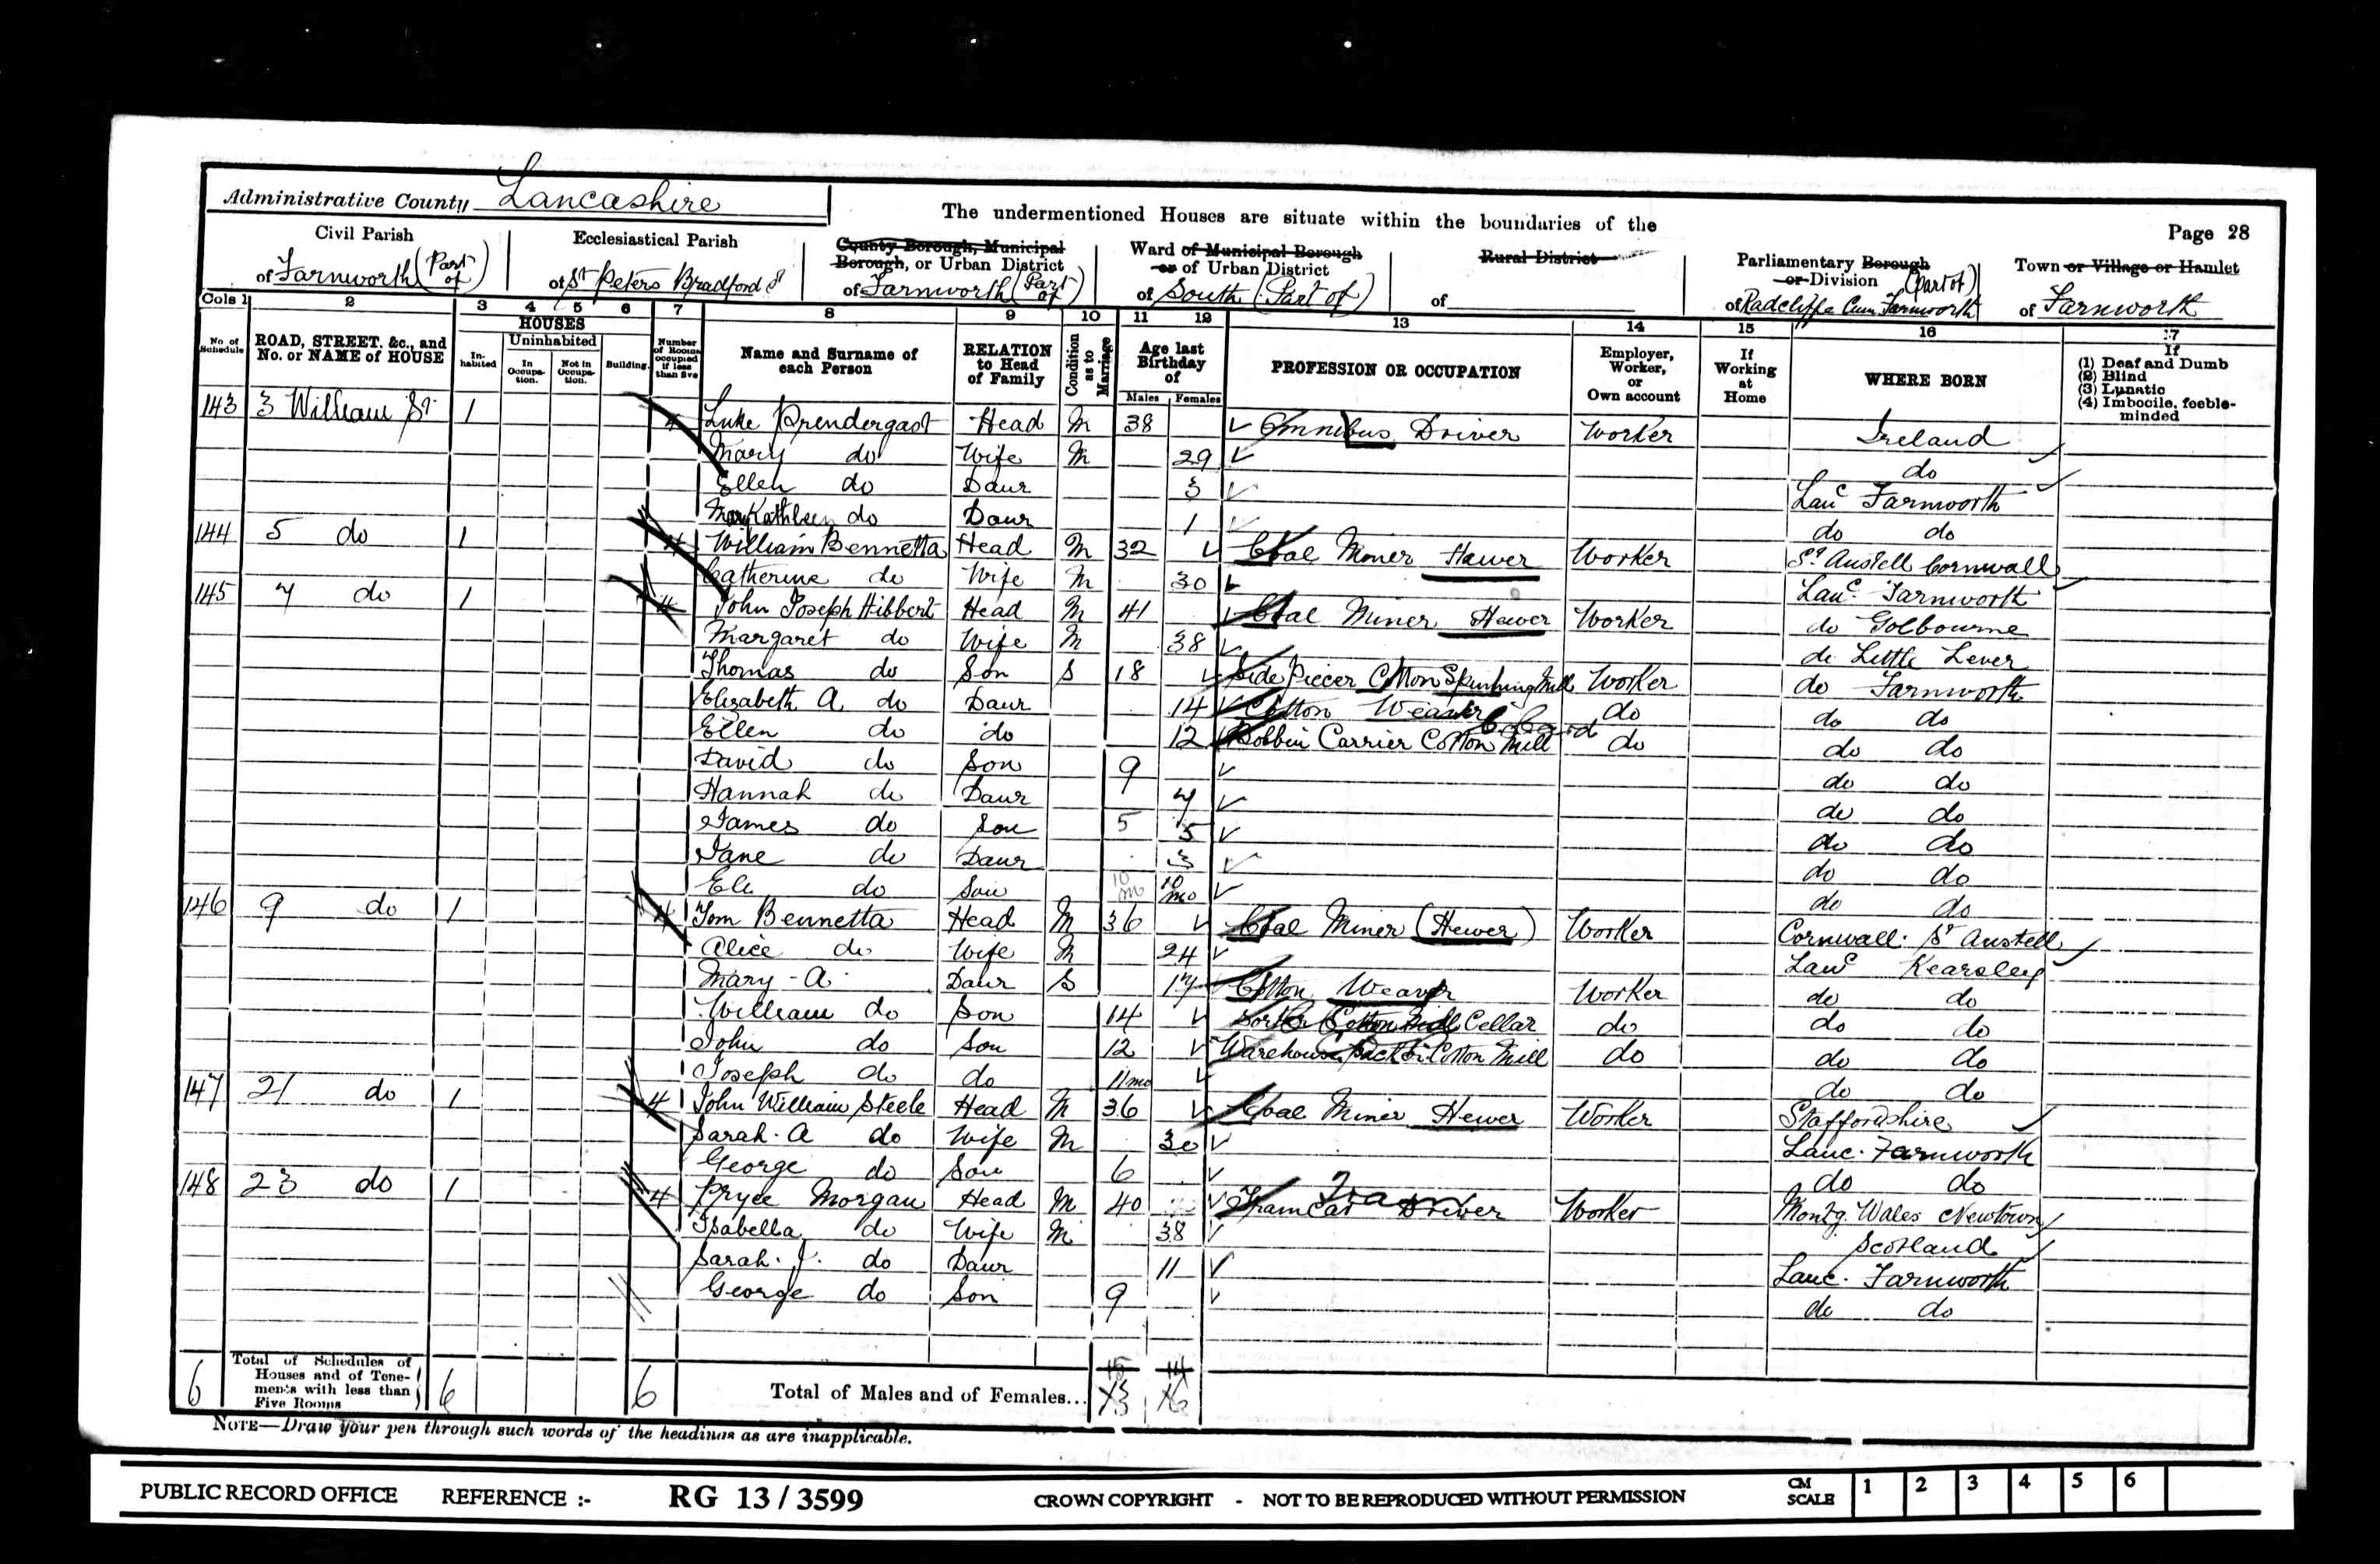 Administrative County Lancashire
The undermentioned Houses are situate within the boundaries of the
Page 28
Civil Parish of Farnworth (Part of)
Ecclesiastical Parish of St Peters Bradford St
County Borough, Municipal Borough, or Urban District of Farnworth (Part of)
Ward of Municipal Borough or of Urban District of South (Part of)
Rural District of
Parliamentary Borough or Division of Radcliffe Cum Farnworth (part of)
Town or Village or Hamlet of Farnworth
Cols 1 2 3 4 5 6 7 8 9 10 11 12 13 14 15 16 17
No. of Schedule ROAD, STREET, &c., and No. or NAME of HOUSE HOUSES Inhabited Uninhabited In Occupation. Not in Occupation. Building. Number of Rooms occupied if less than five Name and Surname of each Person RELATION to Head of Family Condition as to Marriage Age last Birthday of Males Females PROFESSION OR OCCUPATION Employer, Worker, or Own account If Working at Home WHERE BORN If (1) Deaf and Dumb (2) Blind (3) Lunatic (4) Imbecile, feeble-minded
143 3 William St 1 4 Luke Prendergast Head M 38 Omnibus Driver Worker Ireland
Mary do Wife M 29 do
Ellen do Daur 3 Lanc Farnworth
Mary Kathleen do Daur 1 do do
144 5 do 1 4 William Bennetta Head M 32 Coal Miner Hewer Worker St Austell Cornwall
Catherine do Wife M 30 Lanc. Farnworth
145 7 do 1 4 John Joseph Hibbert Head M 41 Coal Miner Hewer Worker do Golbourne
Margaret do Wife M 38 do Little Lever
Thomas do Son S 18 Side Piecer Cotton Spinning Mill Worker do Farnworth
Elizabeth A do Daur 14 Cotton Weaver do do do
Ellen do do 12 Bobbin Carrier Cotton Mill do do do
David do Son 9 do do
Hannah do Daur 7 do do
James do Son 5 5 do do
Jane do Daur 3 do do
Eli do Son 10 mo 10 mo do do
146 9 do 1 4 Tom Bennetta Head M 36 Coal Miner (Hewer) Worker Cornwall St Austell
Alice do Wife M 24 Lanc Kearsley
Mary - A. Daur S 17 Cotton Weaver Worker do do
William do Son 14 Cotton Mill Cellar do do do
John do Son 12 Warehouse Cotton Mill do do do
Joseph do do 11 mo do do
147 21 do 1 4 John William Steele Head M 36 Coal Miner Hewer Worker Staffordshire
Sarah. A do Wife M 30 Lanc. Farnworth
George do Son 6 do do
148 23 do 1 4 Pryce Morgan Head M 40 Tram Car Driver Tram Worker Montg. Wales Newtown
Isabella do Wife M 38 Scotland
Sarah. J. do Daur 11 Lanc. Farnworth
George do Son 9 do do
6 Total of Schedules of Houses and of Tenements with less than Five Rooms 6 6 Total of Males and of Females... 15 14
NOTE—Draw your pen through such words of the headings as are inapplicable.
PUBLIC RECORD OFFICE REFERENCE :- RG 13 / 3599 CROWN COPYRIGHT - NOT TO BE REPRODUCED WITHOUT PERMISSION CM SCALE 1 2 3 4 5 6